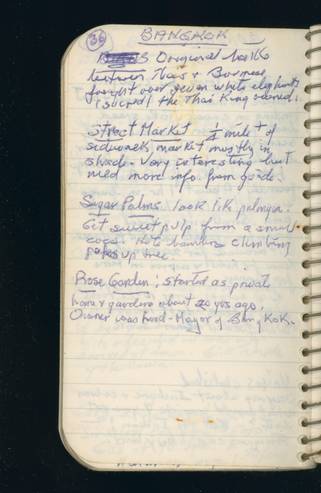 36 BANGKOK
Original battle
between Thais & Burmese
fought over seven white elephants
(sacred) the Thai King owned.
Street Market 1/4 mile + of
sidewalk market mostly in
shade. Very interesting but
need more info. from guide.
Sugar Palms look lik palmyra.
Get sweet pulp from a small
coco. Note bamboo climbing
poles up tree.
Rose Garden: started as private
home & gardens about 20 years ago.
Owner was Lord-Mayor of Bangkok.